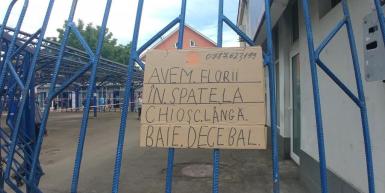 AVEM. FLORII
ÎN. SPATE LA
CHIOSC. LÂNGĂ.
BAIE. DECEBAL.